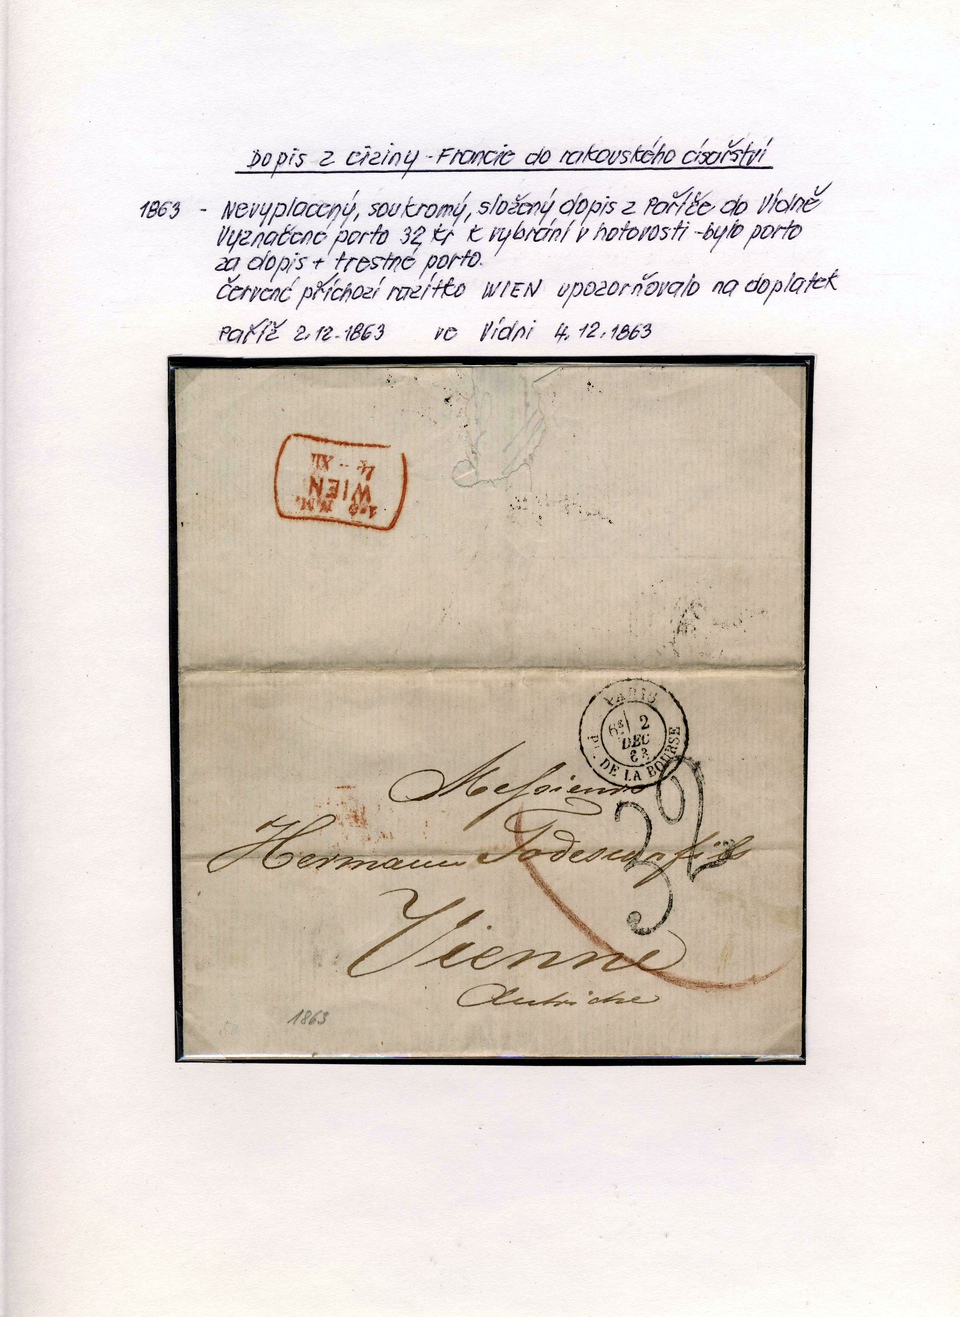 Dopis z ciziny - Francie do rakouského císařství
1863 - Nevyplacený, soukromý, složený dopis z Paříže do Vídně
Vyznačené porto 32 kr k vybrání v hotovosti - bylo porto
za dopis + trestné porto.
Červené příchozí razítko WIEN upozorňovalo na doplatek
Paříž 2.12.1863 ve Vídni 4.12.1863
4 - XII
WIEN
N.M.
PARIS
2
DEC
63
PL. DE LA BOURSE
32
Messieurs
Hermann Todesco fils
Vienne
Autriche
1863